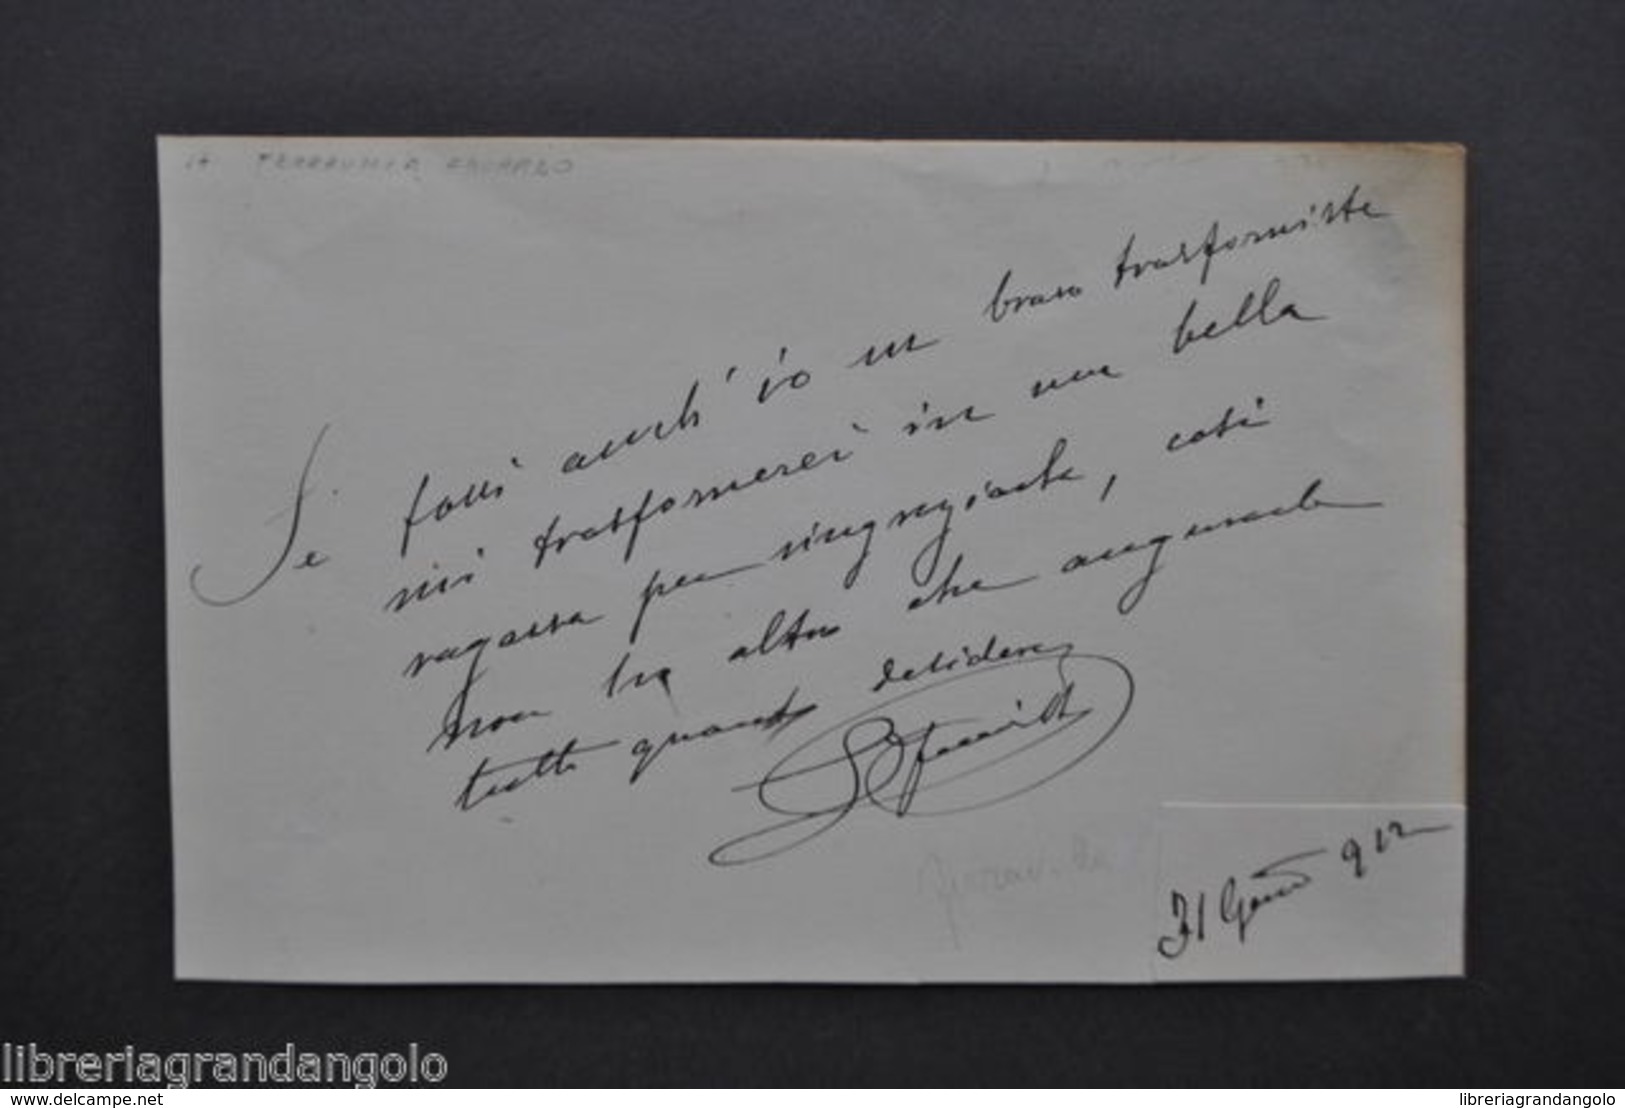 Se fossi anch' io un bravo trasformista
mi trasformerei in una bella
ragazza per ringraziarla, così
non ho altro che augurarle
tutto quanto desidera
31 Genn 912
libreriagrandangolo
www.delcampe.net
libreriagrandangolo